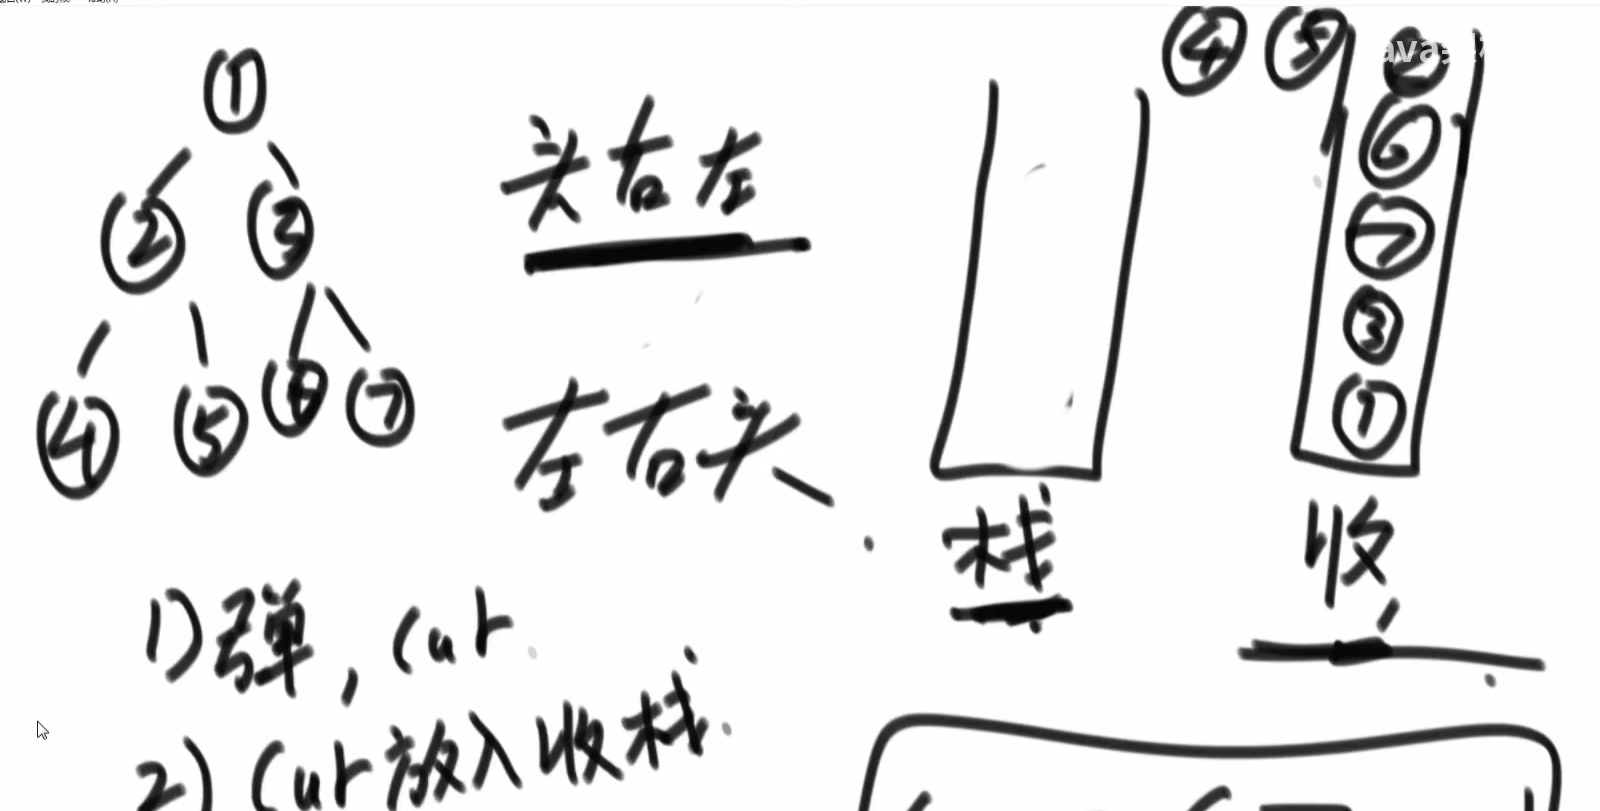 ①
② ③
④ ⑤ ⑥ ⑦
头右左
左右头
④ ⑤
⑥
⑦
③
①
栈
收
1) 弹, cur
2) cur 放入收栈